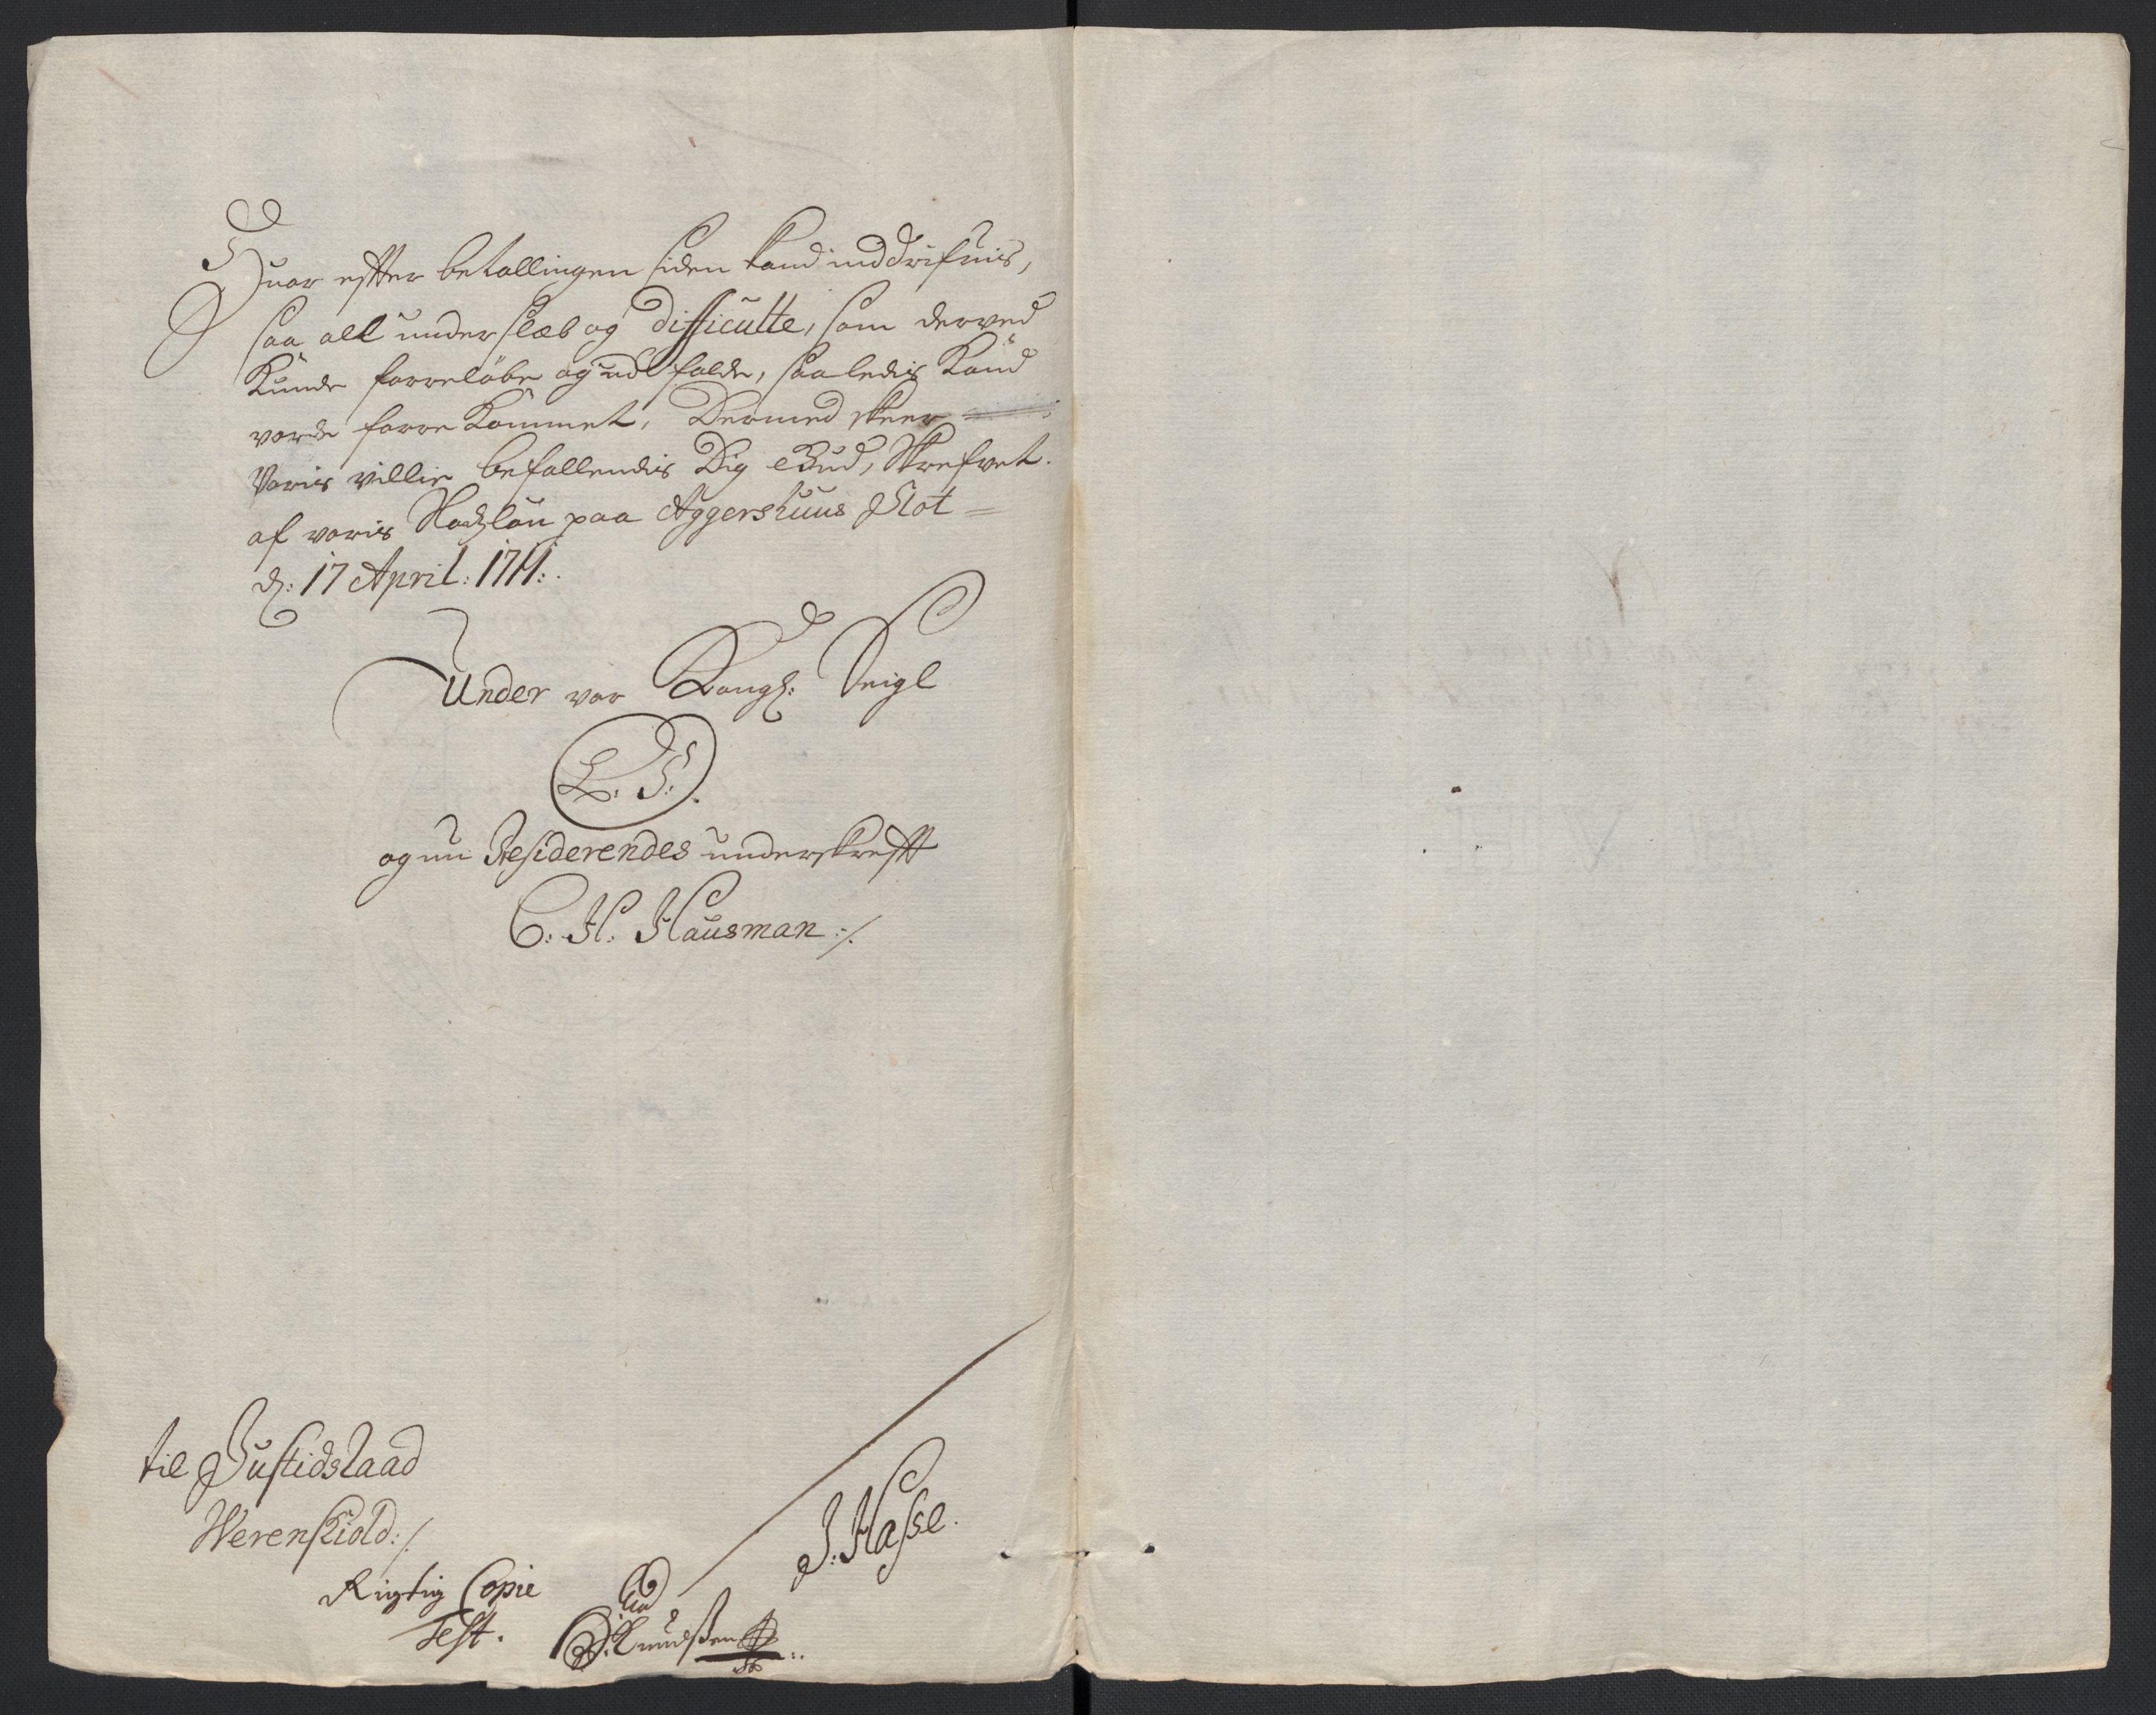 Huor efter betallingen siden kand inddrifuis,
saa all underslæb og difficulte, som derved
Kunde forreløbe og udfalde, saaledis Kand
vorde forrekommet, Dermed skeer
Voris villie befallendis Dig Gud, Skrefvet
af voris Radstuu paa Aggershuus Slot
d: 17 April: 1711:
Under vor Kongl: Seigl
L: S:
og nu Residerendes underskrefft
C: H: Hausman:/.
til Justidsraad
Werenskiold:/.
Rigtig Copie
Test.
Knudssen
J: Hasse.